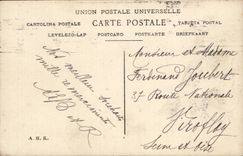 UNION POSTALE UNIVERSELLE
CARTOLINA POSTALE CARTE POSTALE TARJETA POSTAL
LEVELEZŐ-LAP POSTCARD POSTKARTE BRIEFKAART
Nos meilleurs souhaits
mille remerciements
Monsieur et Madame
Ferdinand Joubert
37 Route Nationale
Viroflay
Seine et Oise
A. H. K.